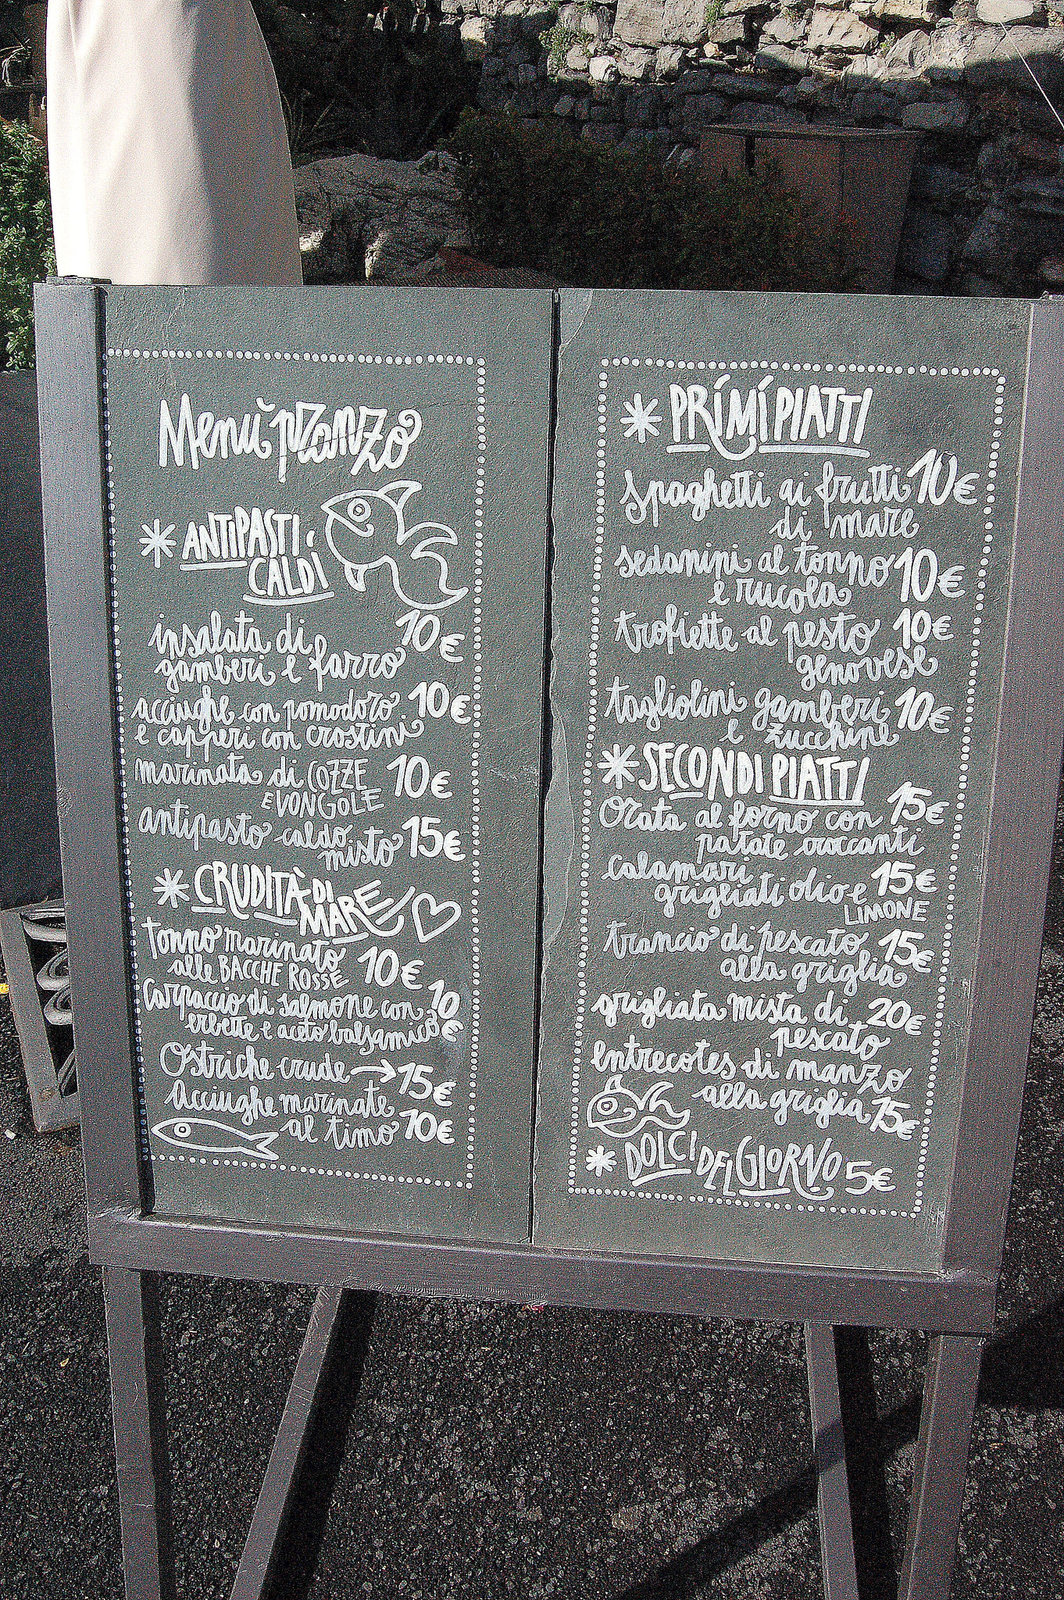 Menù pranzo
* ANTIPASTI
CALDI
insalata di 10€
gamberi e farro
acciughe con pomodoro 10€
e capperi con crostini
marinata di COZZE 10€
E VONGOLE
antipasto caldo 15€
misto
* CRUDITÀ DI
MARE
tonno marinato 10€
alle BACCHE ROSSE
Carpaccio di salmone con 10
erbette e aceto balsamico €
Ostriche crude → 15€
Acciughe marinate 10€
al timo
* PRÍMÍ PIATTI
spaghetti ai frutti 10€
di mare
sedanini al tonno 10€
e rucola
trofiette al pesto 10€
genovese
tagliolini gamberi 10€
e zucchine
* SECONDI PIATTI
Orata al forno con 15€
patate croccanti
calamari 15€
grigliati olio e
LIMONE
trancio di pescato 15€
alla griglia
grigliata mista di 20€
pescato
entrecotes di manzo
alla griglia 15€
* DOLCI DEL GIORNO 5€